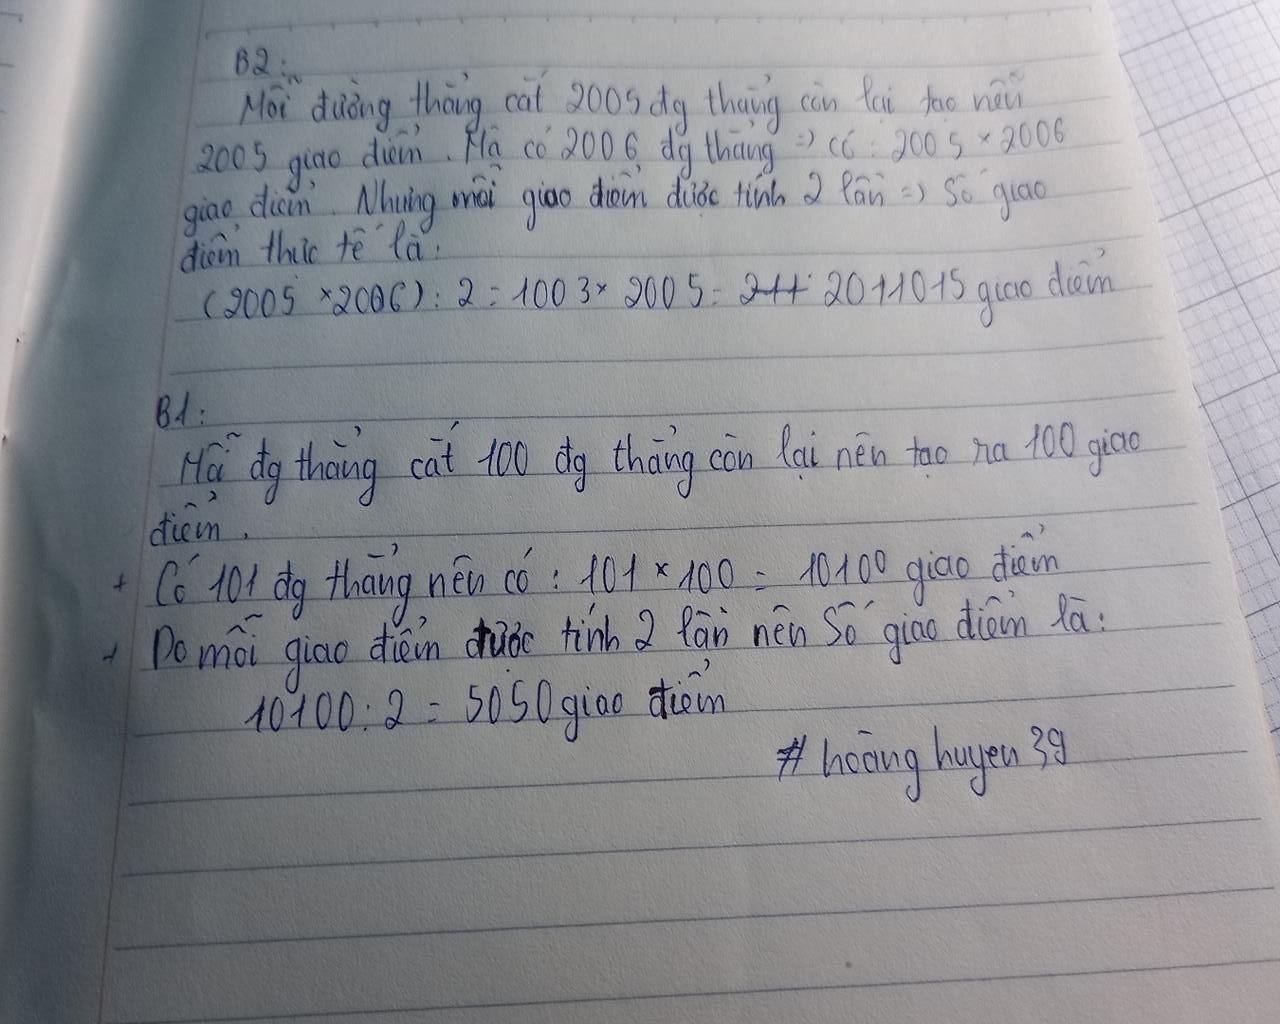 B2:
Mỗi đường thẳng cắt 2005 đg thẳng còn lại tạo nên
2005 giao điểm. Mà có 2006 đg thẳng => có: 2005 × 2006
giao điểm. Nhưng mỗi giao điểm được tính 2 lần => Số giao
điểm thực tế là:
(2005 × 2006) : 2 = 1003 × 2005 = 2011015 giao điểm
B1:
Mỗi đg thẳng cắt 100 đg thẳng còn lại nên tạo ra 100 giao
điểm.
+ Có 101 đg thẳng nên có : 101 × 100 = 10100 giao điểm
+ Do mỗi giao điểm được tính 2 lần nên Số giao điểm là:
10100 : 2 = 5050 giao điểm
# hoàng huyen 39